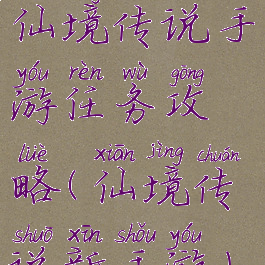 仙境传说手
yóu rèn wù gōng
游任务攻
lüè xiān jìng chuán
略(仙境传
shuō xīn shǒu yóu
说新手游)